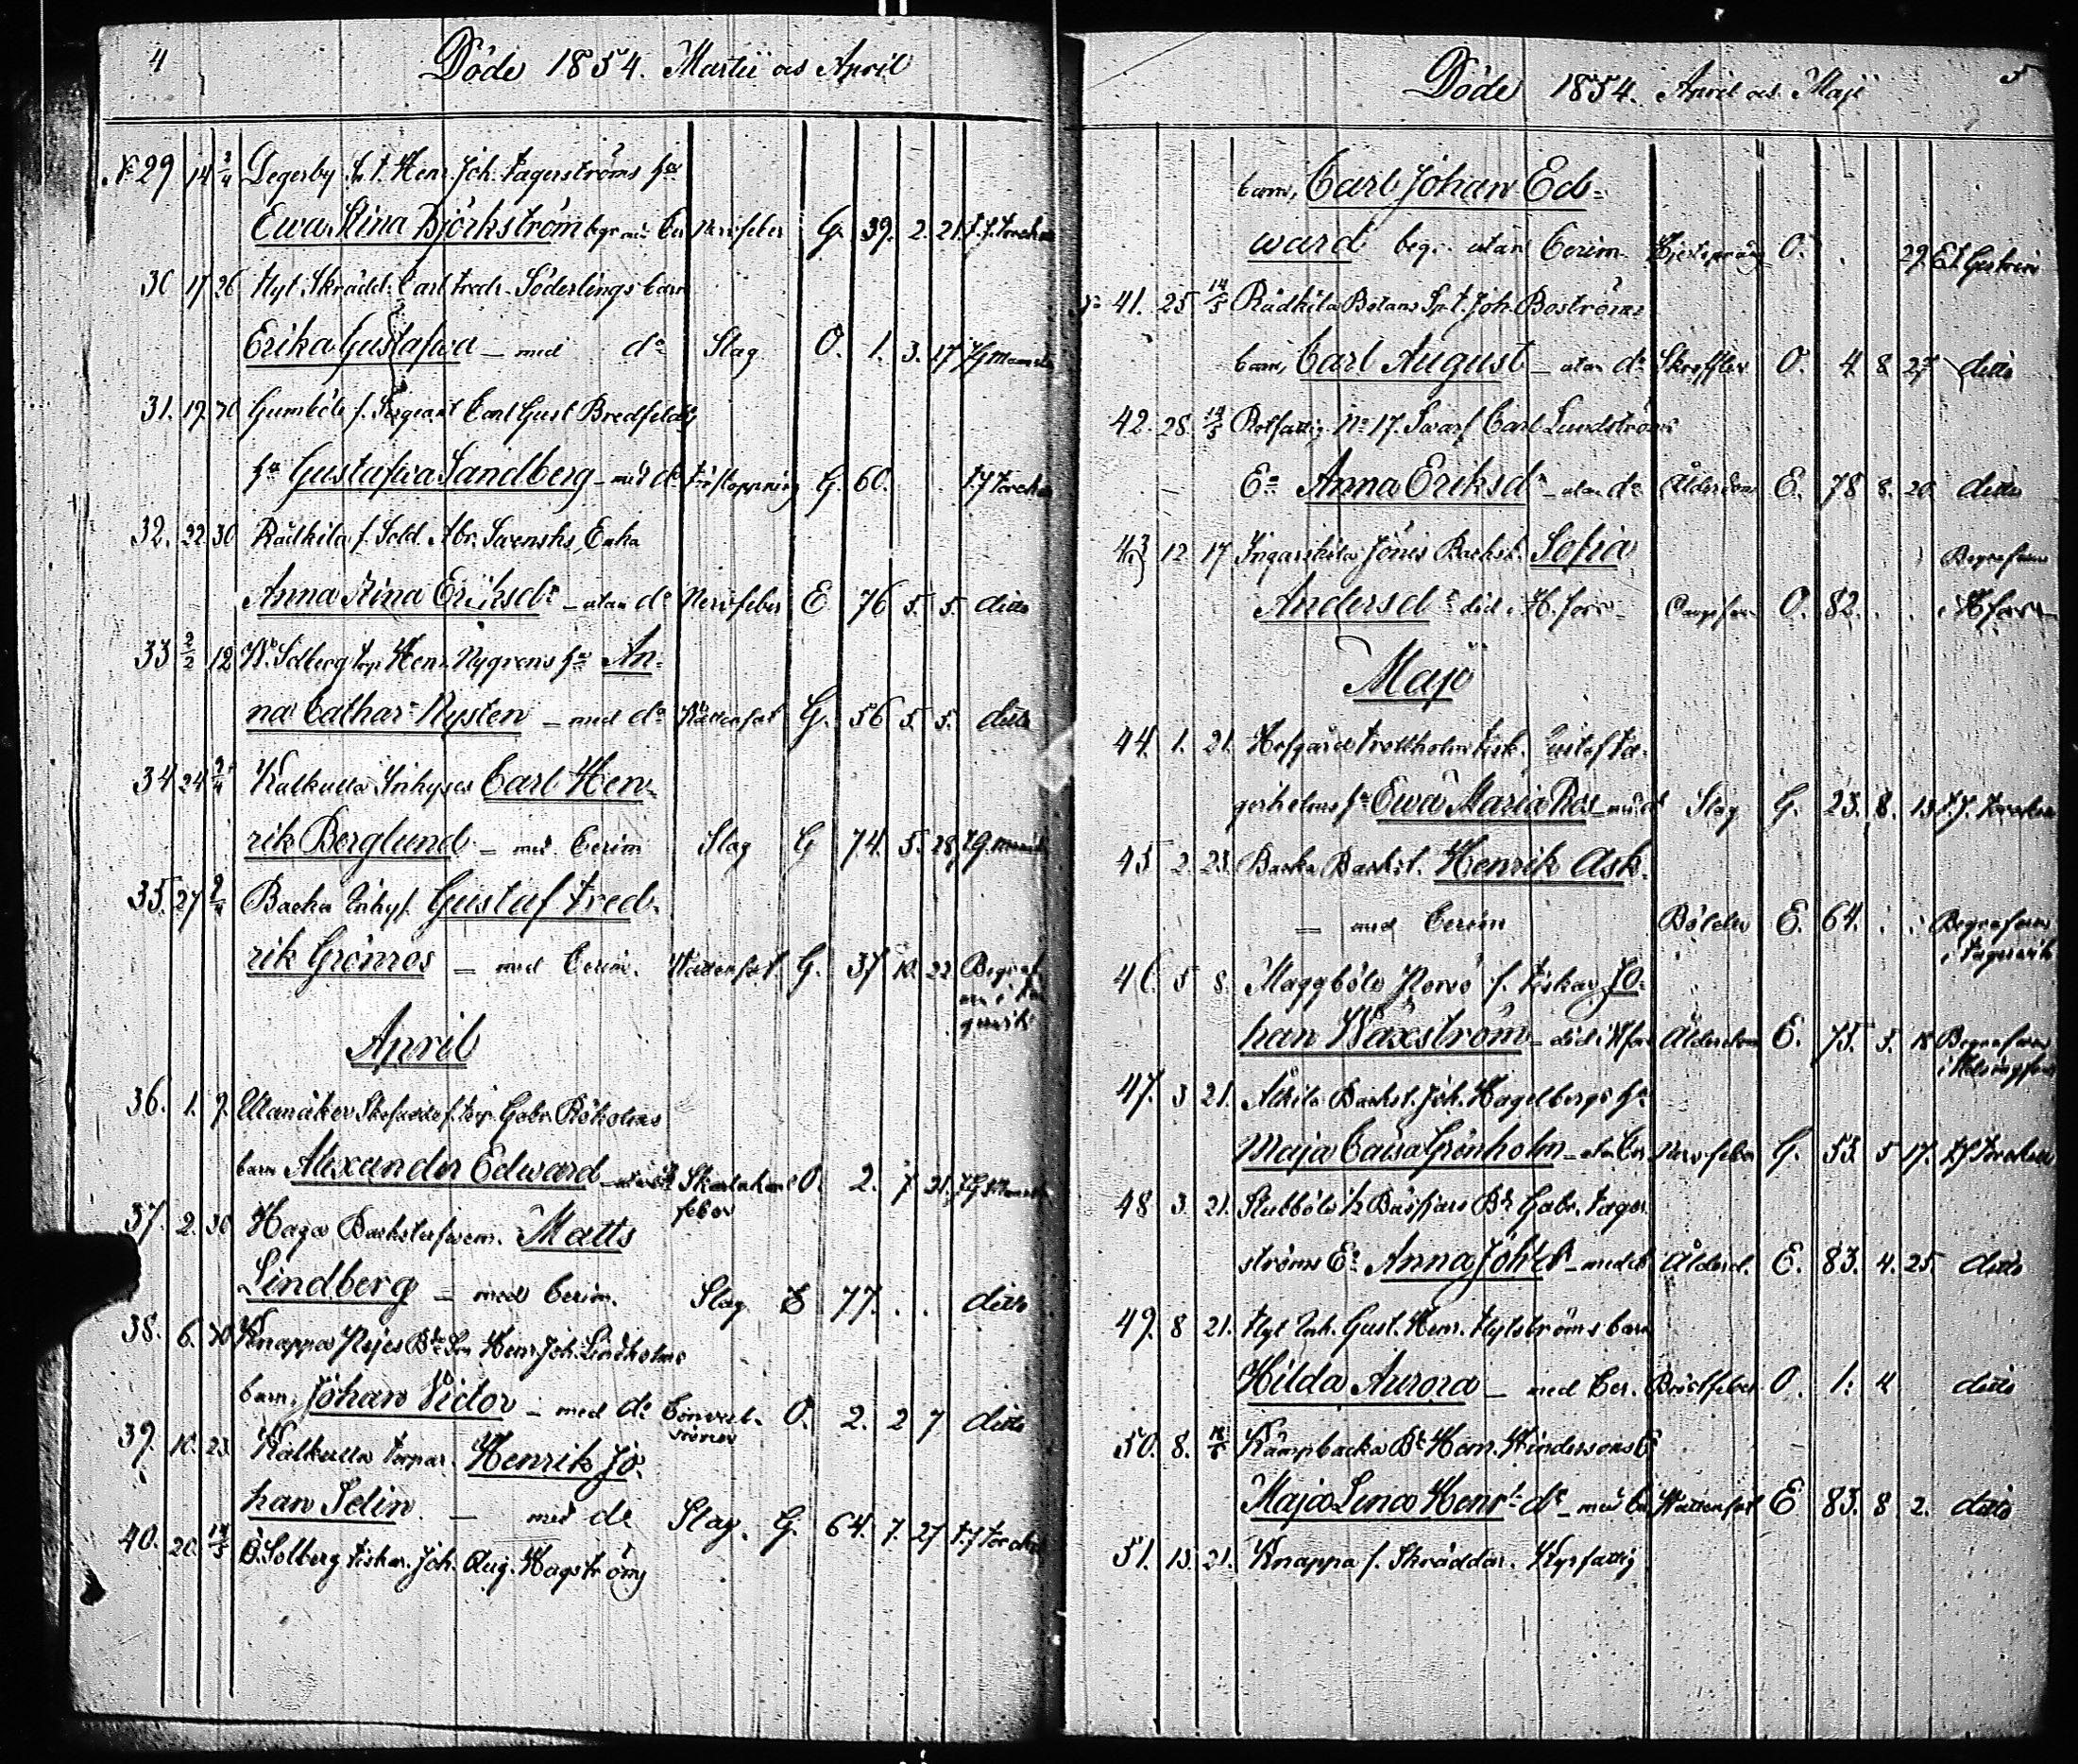 4
Döde 1854. Martii och April
No 29 14 2/4 Degerby Sp.t. Henr. Joh. Fagerströms hu
Ewa Stina Björkström begr. med Cer Nervfeber G. 39. 2. 21
30 17 26 Nyl. Skrädd. Carl Fredr. Söderlings barn
Erika Gustafwa – med do Slag O. 1. 3. 17
31. 19. 30 Gumböle f. Sergeant Carl Gust Bredfeldts
hu Gustafwa Sandberg – med do Förstoppning G. 60.
32. 22. 30 Rådkila f. Sold. Abr. Svensks Enka
Anna Stina Eriksdr – utan do Nervfeber E 76 5. 5. ditto
33 2/2 12 W. Solberg torp. Henr. Nygrens hu An-
na Cathar. Nysten – med do Wattensot G. 56 5. 5. ditto
34 24 2/4 Kalkulla Inhyses Carl Hen-
rik Berglund – med Cerim Slag G 74. 5. 28
35. 27 2/4 Backa Inhys. Gustaf Fred-
rik Grönros – med Cerim. Wattensot. G. 37 10. 22 Begraf-
en i Fa
gervik
April
36. 1. 9. Skefwede f. torp. Gabr. Rökolms
barn Alexander Edward Skarlakans O. 2. 7 21.
feber
37. 2. 30 Haga Backstufwem. Matts
Lindberg – med Cerim. Slag E 77. . . ditto
38. 6. 30 Knappas Nejes Bde Son Henr. Joh. Lindholms
barn, Johan Victor – med do Convul- O. 2. 2 7 ditto
sioner
39. 10. 23. Kalkulla torpar. Henrik Jo-
han Selin – med do Slag. G. 64. 7. 27
40. 20. 14/5 Ö. Solberg Fiskar. Joh. Aug. Hagströms
5
Döde 1854. April och Maji
barn, Carl Johan Ed-
ward beg. utan Cerim. O. . 29.
No 41. 25 14/5 Rådkila Botans Sp.t. Joh. Boströms
barn, Carl August – utan do Skroffler O. 4. 8 27 ditto
42. 28. 14/5 Rotfattig No 17. Svarf. Carl Lundströms
Ea Anna Eriksdr – utan do Ålderdom E. 78 8. 20. ditto
43 12 17 Ingarskila Jönis Backst. Sofia Begrafven
Andersdr död i H.fors O. 82. . . i H.fors
Majo
44. 1. 21. Hofgård Trollholm Fisk. Gustaf Fa-
gerholms hu Ewa Maria Ros – med do Slag G. 23. 8. 13
45 2. 23. Backa Backst. Henrik Ask.
– med Cerim Bölder E. 64. . . Begrafven
i Fagervik
46. 5 8. Maggböle Norro f. Fiskar Jo-
han Waxström – död i H.fors Ålderdom E. 75. 5. 18 Begrafven
i Helsingfors
47. 3 21. Åkila Backst. Joh. Hagelbergs hu
Maja Caisa Grönholm – utan Cer. Nervfeber G. 53. 5 17.
48 3. 21. Stubböle Bde Gabr. Fager-
ströms Ea Anna Johsdr – med do Ålderd. E. 83. 4. 25. ditto
49. 8 21. Nyl Inh. Gust. Henr. Nylströms barn
Hilda Aurora – med Cer. Bröstfeber O. 1. 4 ditto
50. 8. 18/6 Kämpbacka Bde Henr. Hindersons Ea
Maja Lena Henrsdr – med Cer Wattensot E 83. 8 2. ditto
51. 15. 21. Knappa f. Skräddar. Kyrfattig